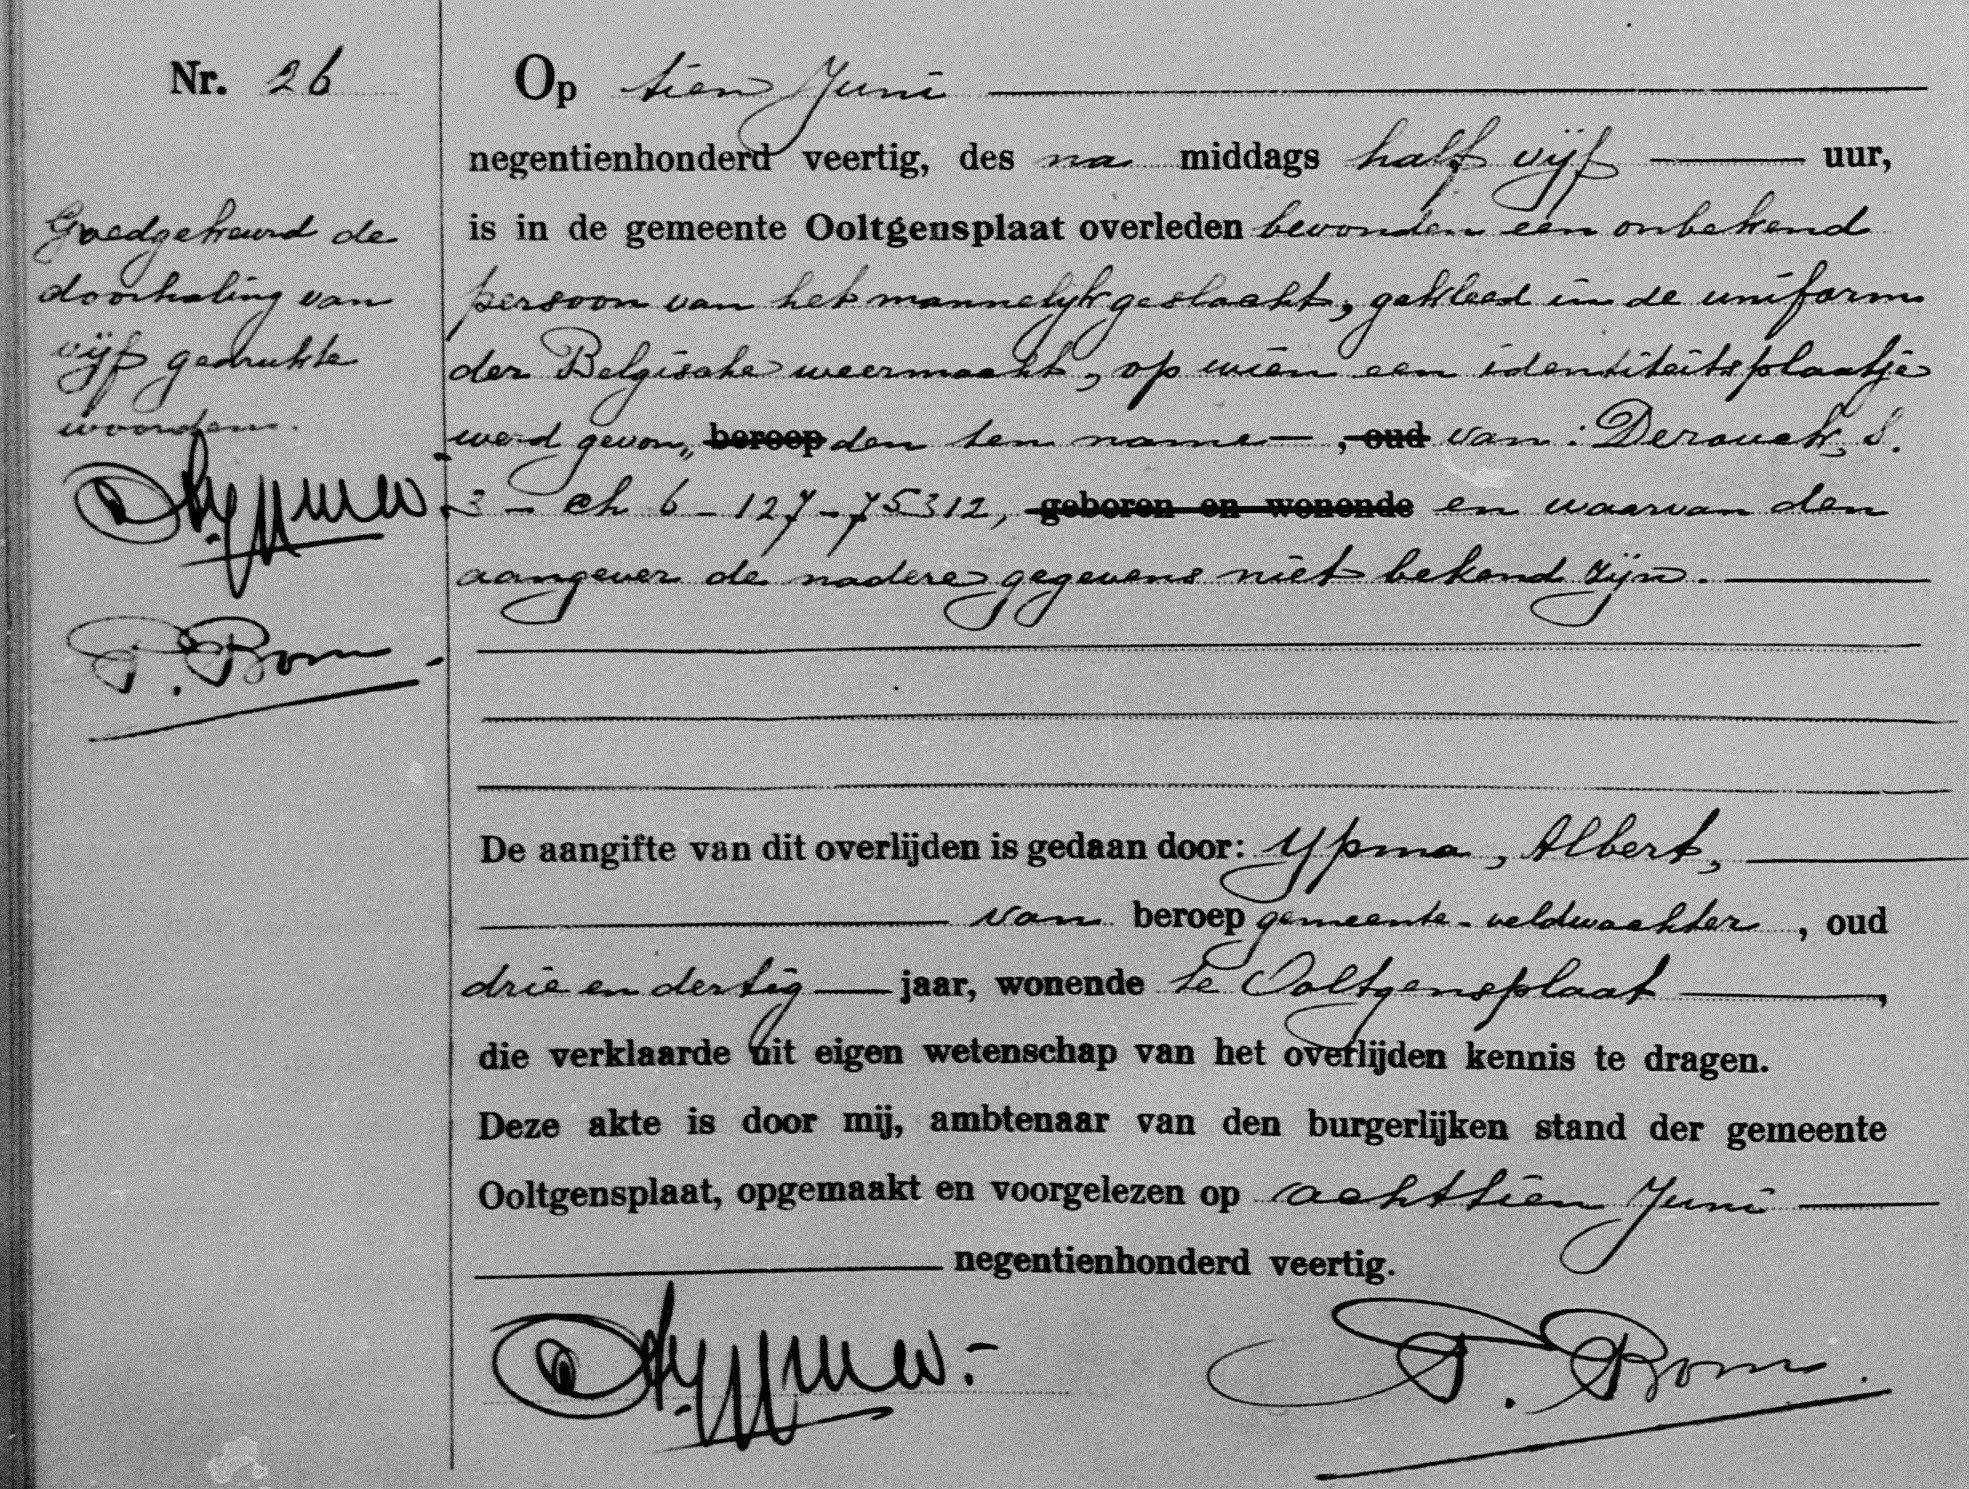 Nr. 26
Op tien Juni
negentienhonderd veertig, des na middags half vijf uur,
is in de gemeente Ooltgensplaat overleden bevonden een onbekend
persoon van het mannelijk geslacht, gekleed in de uniform
der Belgische weermacht, op wien een identiteitsplaatje
werd gevon„ beroep den ten name , oud van: Derouck, S.
3 - ch 6 - 127 - 75312, geboren en wonende en waarvan den
aangever de nadere gegevens niet bekend zijn.
Goedgekeurd de
doorhaling van
vijf gedrukte
woorden.
P. Bom
De aangifte van dit overlijden is gedaan door: Ypma, Albert,
van beroep gemeente-veldwachter, oud
drie en dertig jaar, wonende te Ooltgensplaat,
die verklaarde uit eigen wetenschap van het overlijden kennis te dragen.
Deze akte is door mij, ambtenaar van den burgerlijken stand der gemeente
Ooltgensplaat, opgemaakt en voorgelezen op achttien Juni
negentienhonderd veertig.
P. Bom.